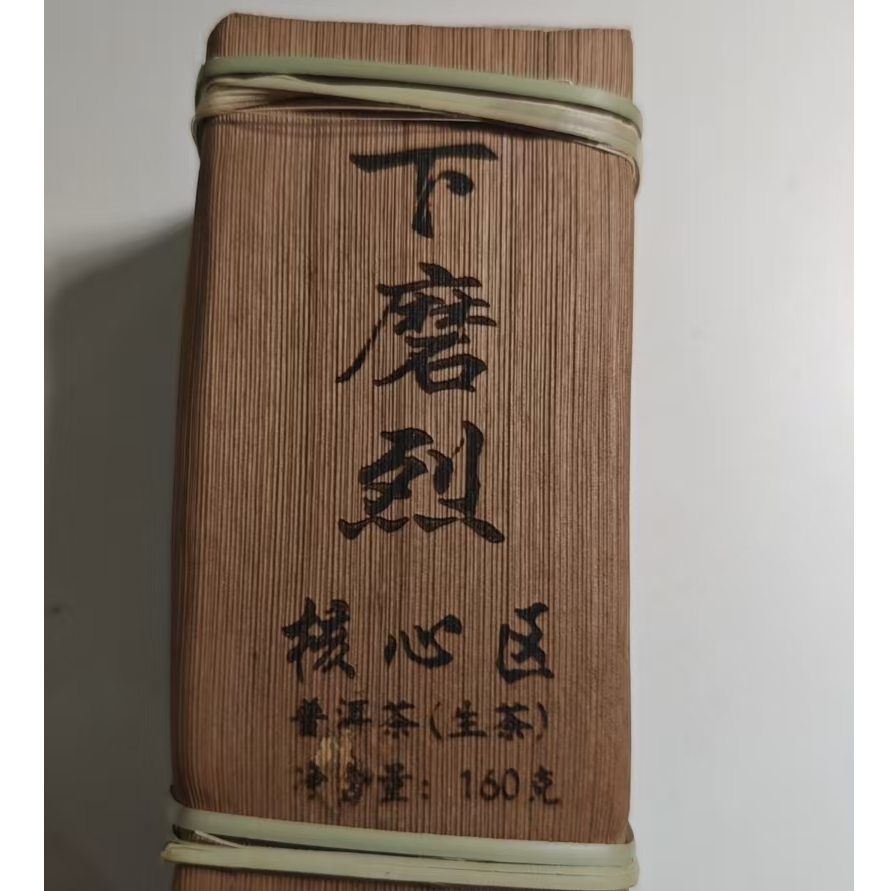 下磨烈
核心区
普洱茶(生茶)
净含量：160克